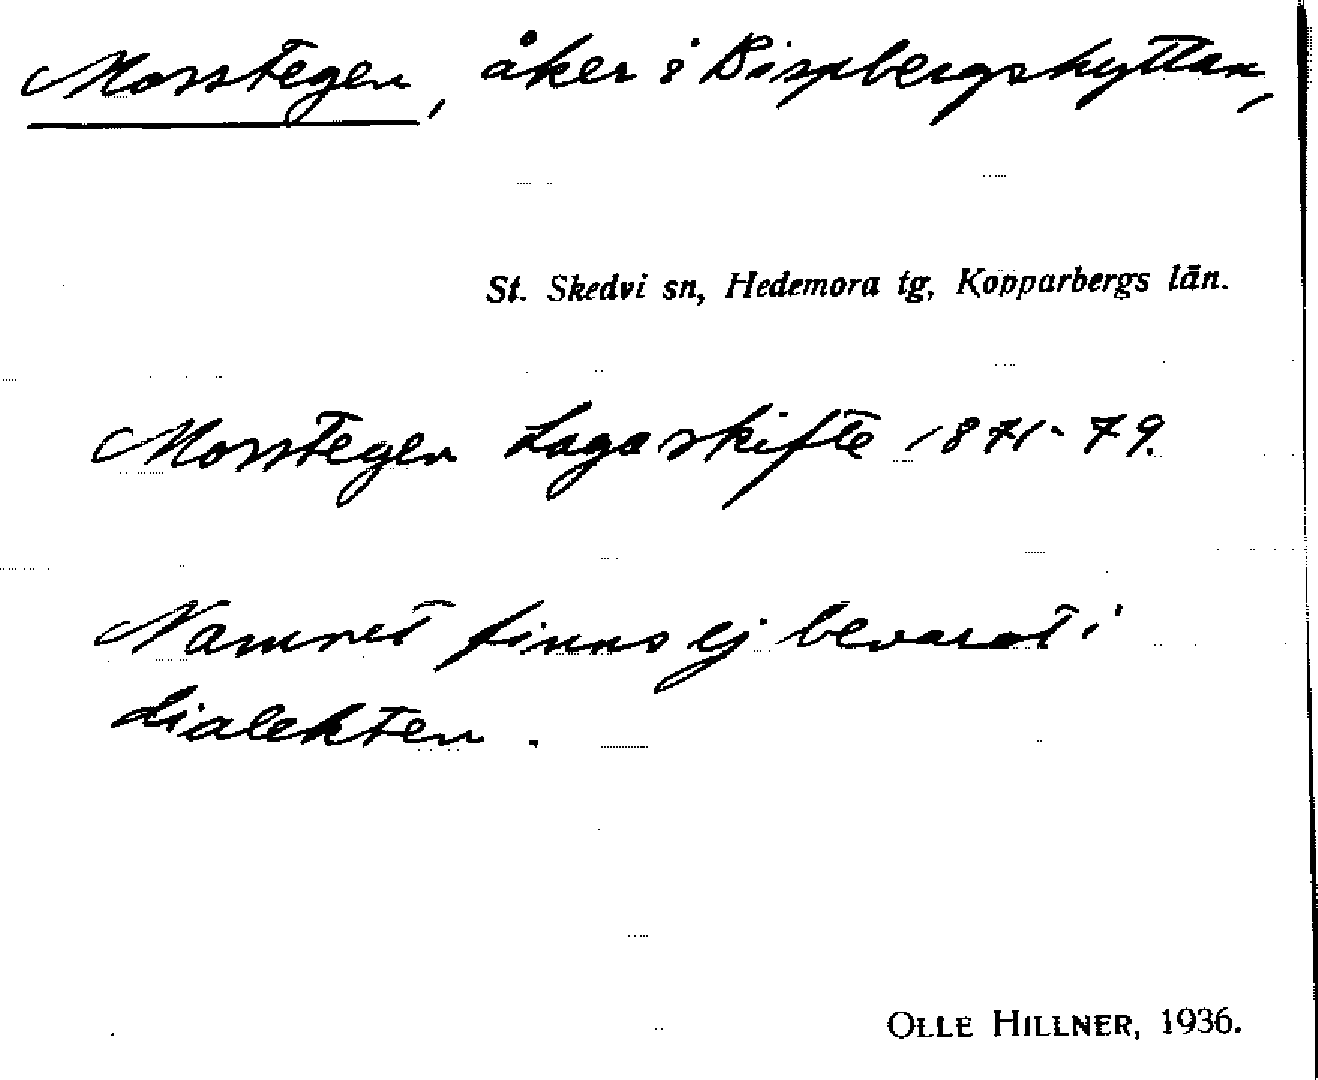 Morstegen, åker i Bispbergshyttan,
St. Skedvi sn, Hedemora tg, Kopparbergs län.
Morstegen Lagaskifte 1871-79.
Namnet finns ej bevarat i
dialekten.
OLLE HILLNER, 1936.